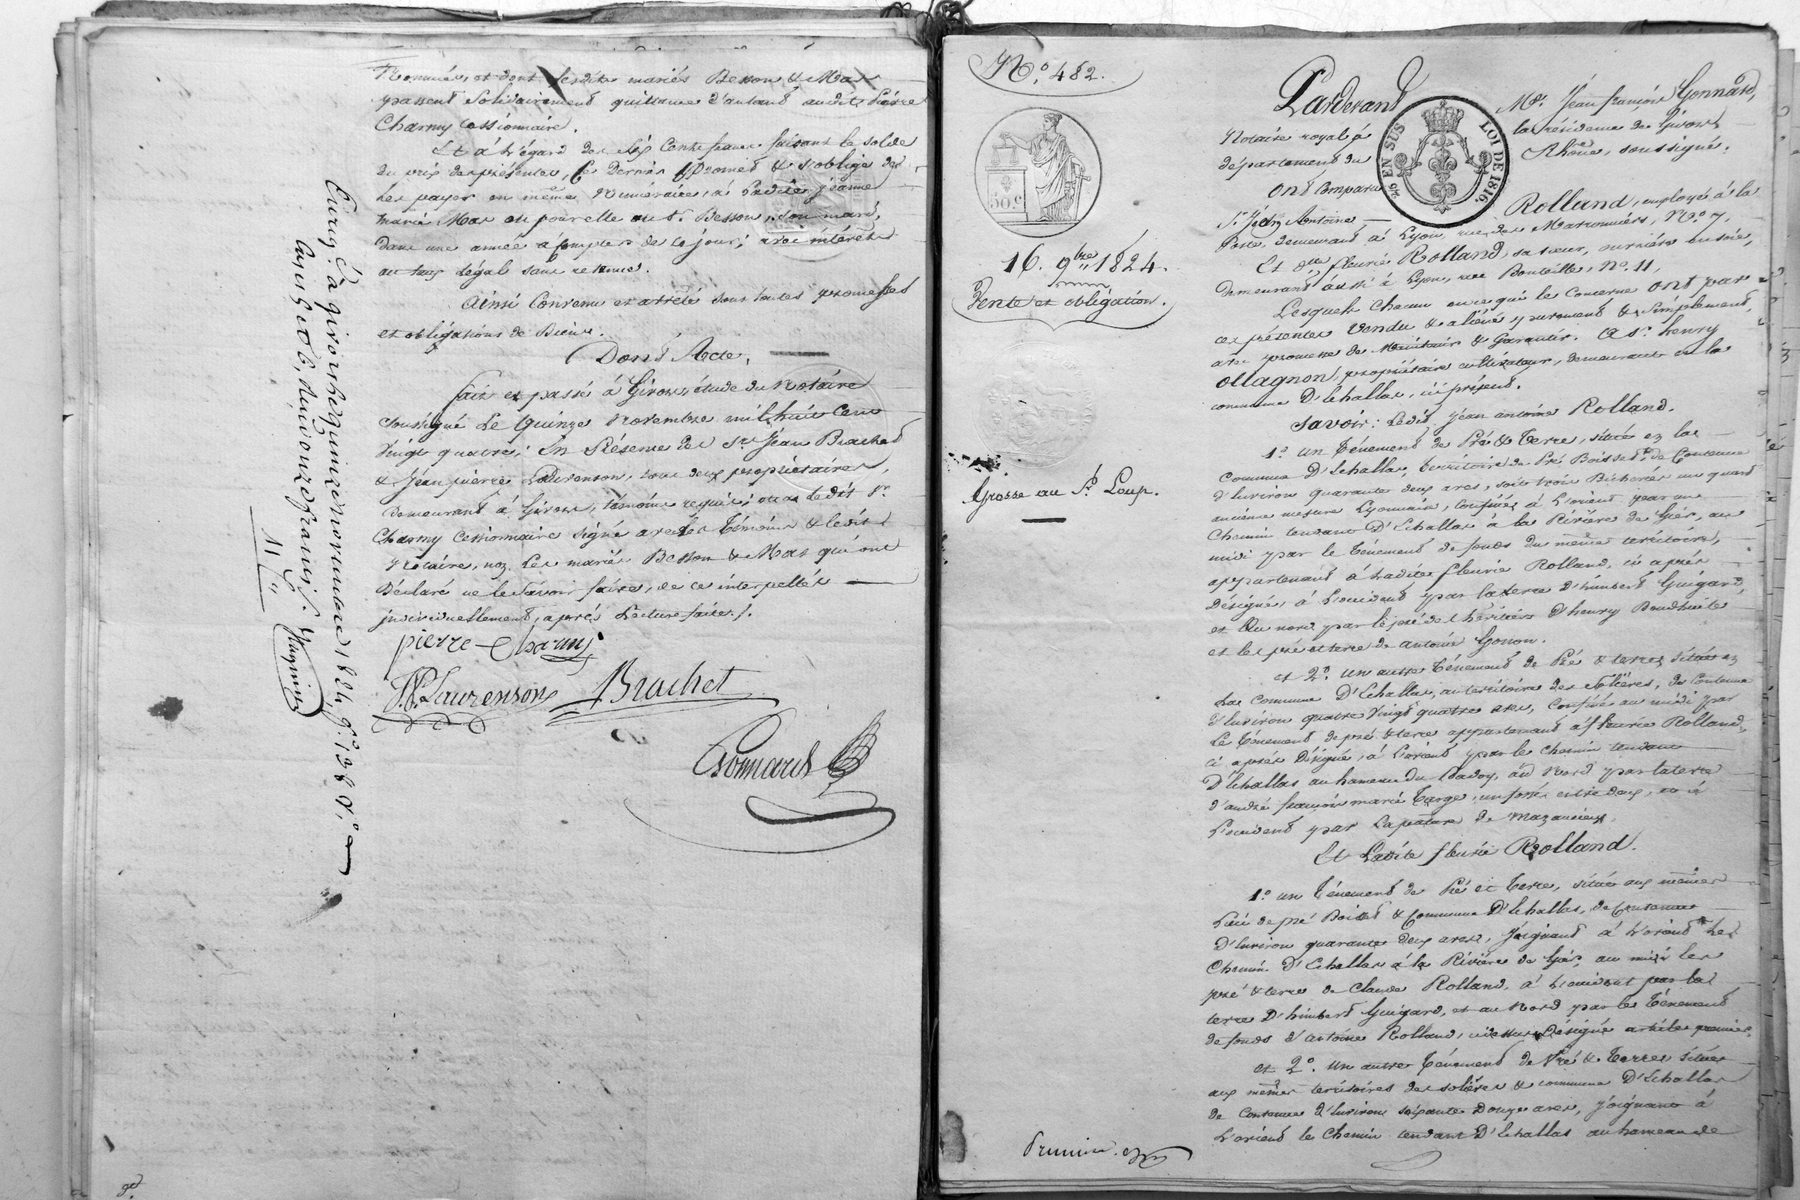 nommée, et dont lesdits mariés Besson & Mas
passent solidairement quittance d'autant audit Pierre
Charmy cessionnaire.
Et à l'égard des six cents francs faisant le solde
du prix des présentes, ce dernier promet & s'oblige de
les payer en même numéraire, à ladite Jeanne
Marie Mas ou pour elle au Sr. Besson, son mari,
dans une année à compter de ce jour, avec intérêts
au taux légal sans retenue.
Ainsi convenu et arrêté sous toutes promesses
et obligations de Biens.
Dont Acte,
fait et passé à Givors, étude du Notaire
soussigné le quinze novembre mil huit cent
vingt quatre; En Présence des Srs Jean Brachet
& Jean pierre Laurenson, tous deux propriétaires,
demeurant à Givors, témoins requis; et a ledit Sr.
Charmy cessionnaire signé avec les témoins & ledit
Notaire, non les mariés Besson & Mas qui ont
déclaré ne le savoir faire, de ce interpellés
individuellement, après lecture faite./.
pierre Charmy
J.P. Laurenson Brachet
Gonnard
Enreg. à givors le quinze novembre 1824, fo. 128 Vo.
N° 482.
50 c
16. 9bre 1824.
Vente et obligation.
Grosse au Sr. Loup.
Pardevant Me. Jean françois Gonnard,
Notaire royal à la résidence de Givors,
département du Rhône, soussigné.
EN SUS LOI DE 1816
Ont Comparu
Sr. Jean Antoine Rolland, employé à la
Poste, demeurant à Lyon, rue des Marronniers, No 7,
Et Dlle fleurie Rolland, sa sœur, ouvrière en soie,
demeurant aussi à Lyon, rue Bouteille, No. 11,
Lesquels chacun en ce qui le concerne ont par
ces présentes vendu & aliéné purement & simplement,
avec promesse de Maintenir & garantir. A Sr. henry
Ollagnon, propriétaire cultivateur, demeurant en la
commune D'Echallas, ici présent.
Savoir: Ledit Jean antoine Rolland.
1o. un Ténement de Pré & Terre, situé en la
Commune D'Echallas, territoire de Pré Boissed, de Contenue
d'Environ quarante deux ares, soit trois Bicherées un quart
ancienne mesure Lyonnaise, Confinés à l'orient par un
Chemin tendant D'Echallas à la Rivière de Gier, au
midi par le ténement de fonds du même territoire,
appartenant à ladite fleurie Rolland, ci après
désigné, à l'occident par la terre d'himbert Guigard,
et Au nord par le pré des héritiers d'henry
et les pré et terre de antoine Gonon.
et 2o. un autre Ténement de Pré & terre, situés en
La Commune D'Echallas, au territoire des Solières, de Contenue
d'Environ quatre vingt quatre ares, confinés au midi par
le Ténement de pré & terre appartenant à fleurie Rolland,
ci après désigné, à l'orient par le chemin tendant
D'Echallas au hameau du, au Nord par la terre
d'andré françois marie Targe, un fossé entre deux, et à
l'occident par la pature de
Et Ladite fleurie Rolland.
1o un Ténement de Pré et Terre, situé au même
Lieu de pré Boissed & Commune D'Echallas, de Contenue
D'Environ quarante deux ares, Joignant à l'orient le
Chemin D'Echallas à la Rivière de Gier, au midi les
pré & terre de Claude Rolland, à l'occident par la
terre D'himbert Guigard, et au Nord par le Ténement
de fonds d'antoine Rolland, ci dessus désigné article premier,
et 2o. un autre Ténement de Pré & Terre situés
aux mêmes territoires des solières & commune D'Echallas
de Contenue d'Environ soixante Douze ares, joignant à
L'orient le Chemin tendant D'Echallas au hameau de